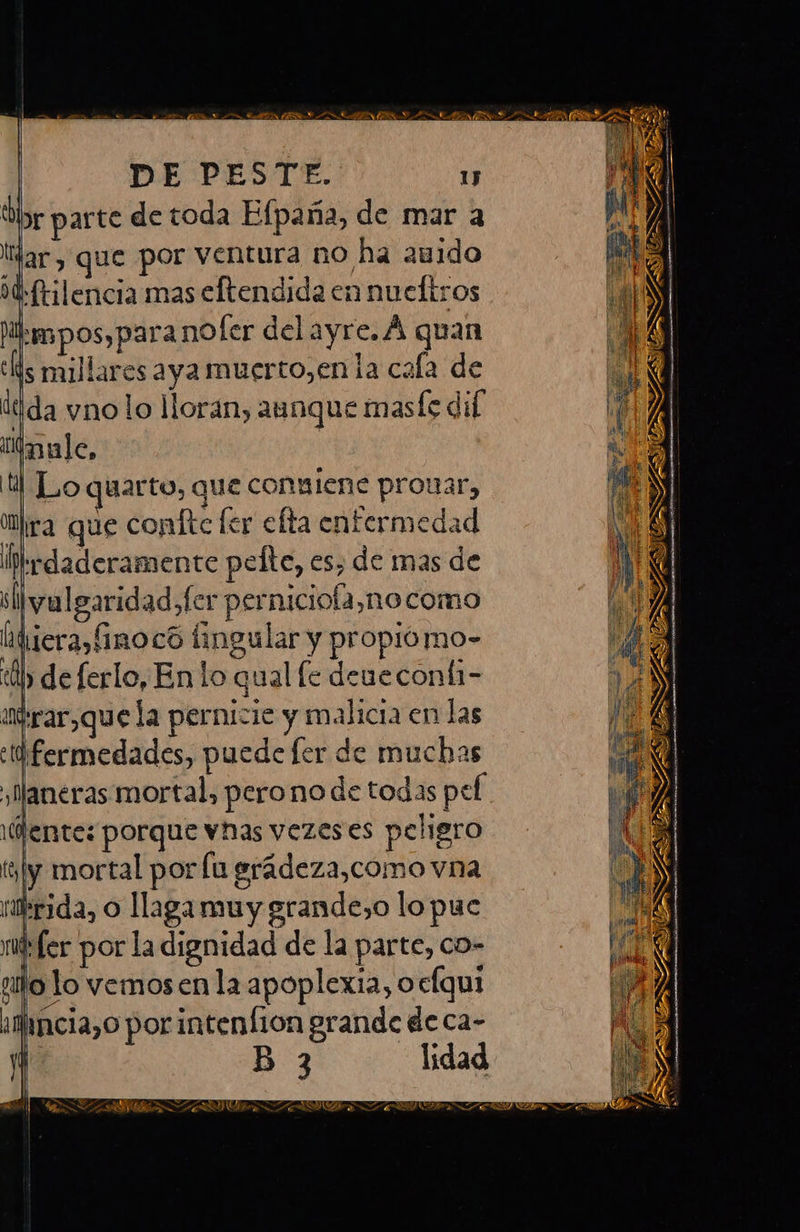 DE PESTE. 11
parte de toda Eſpaña, de mar a
que por ventura no ha auido
mas eſtendida en nueſtros
para no ſer del ayre. A quan
millares aya muerto, en la caſa de
vno lo lloran, aunque mas ſe diſ
Lo quarto, que conuiene prouar,
que conſte ſer eſta enfermedad
peſte, es, de mas de
vulgaridad, ſer pernicioſa, no como
ſino cõ ſingular y propio mo-
de ſerlo, En lo qual ſe deue conſi-
que la pernicie y malicia en las
puede ſer de muchas
mortal, pero no de todas peſ
porque vnas vezes es peligro
mortal por ſu grãdeza, como vna
o llaga muy grande, o lo pue
ſer por la dignidad de la parte, co-
lo vemos en la apoplexia, o eſqui
o por intenſion grande de ca-
B 3 lidad